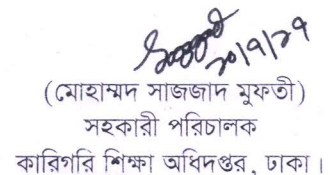 ২০/৭/২৭
(মোহাম্মদ সাজজাদ মুফতী)
সহকারী পরিচালক
কারিগরি শিক্ষা অধিদপ্তর, ঢাকা।